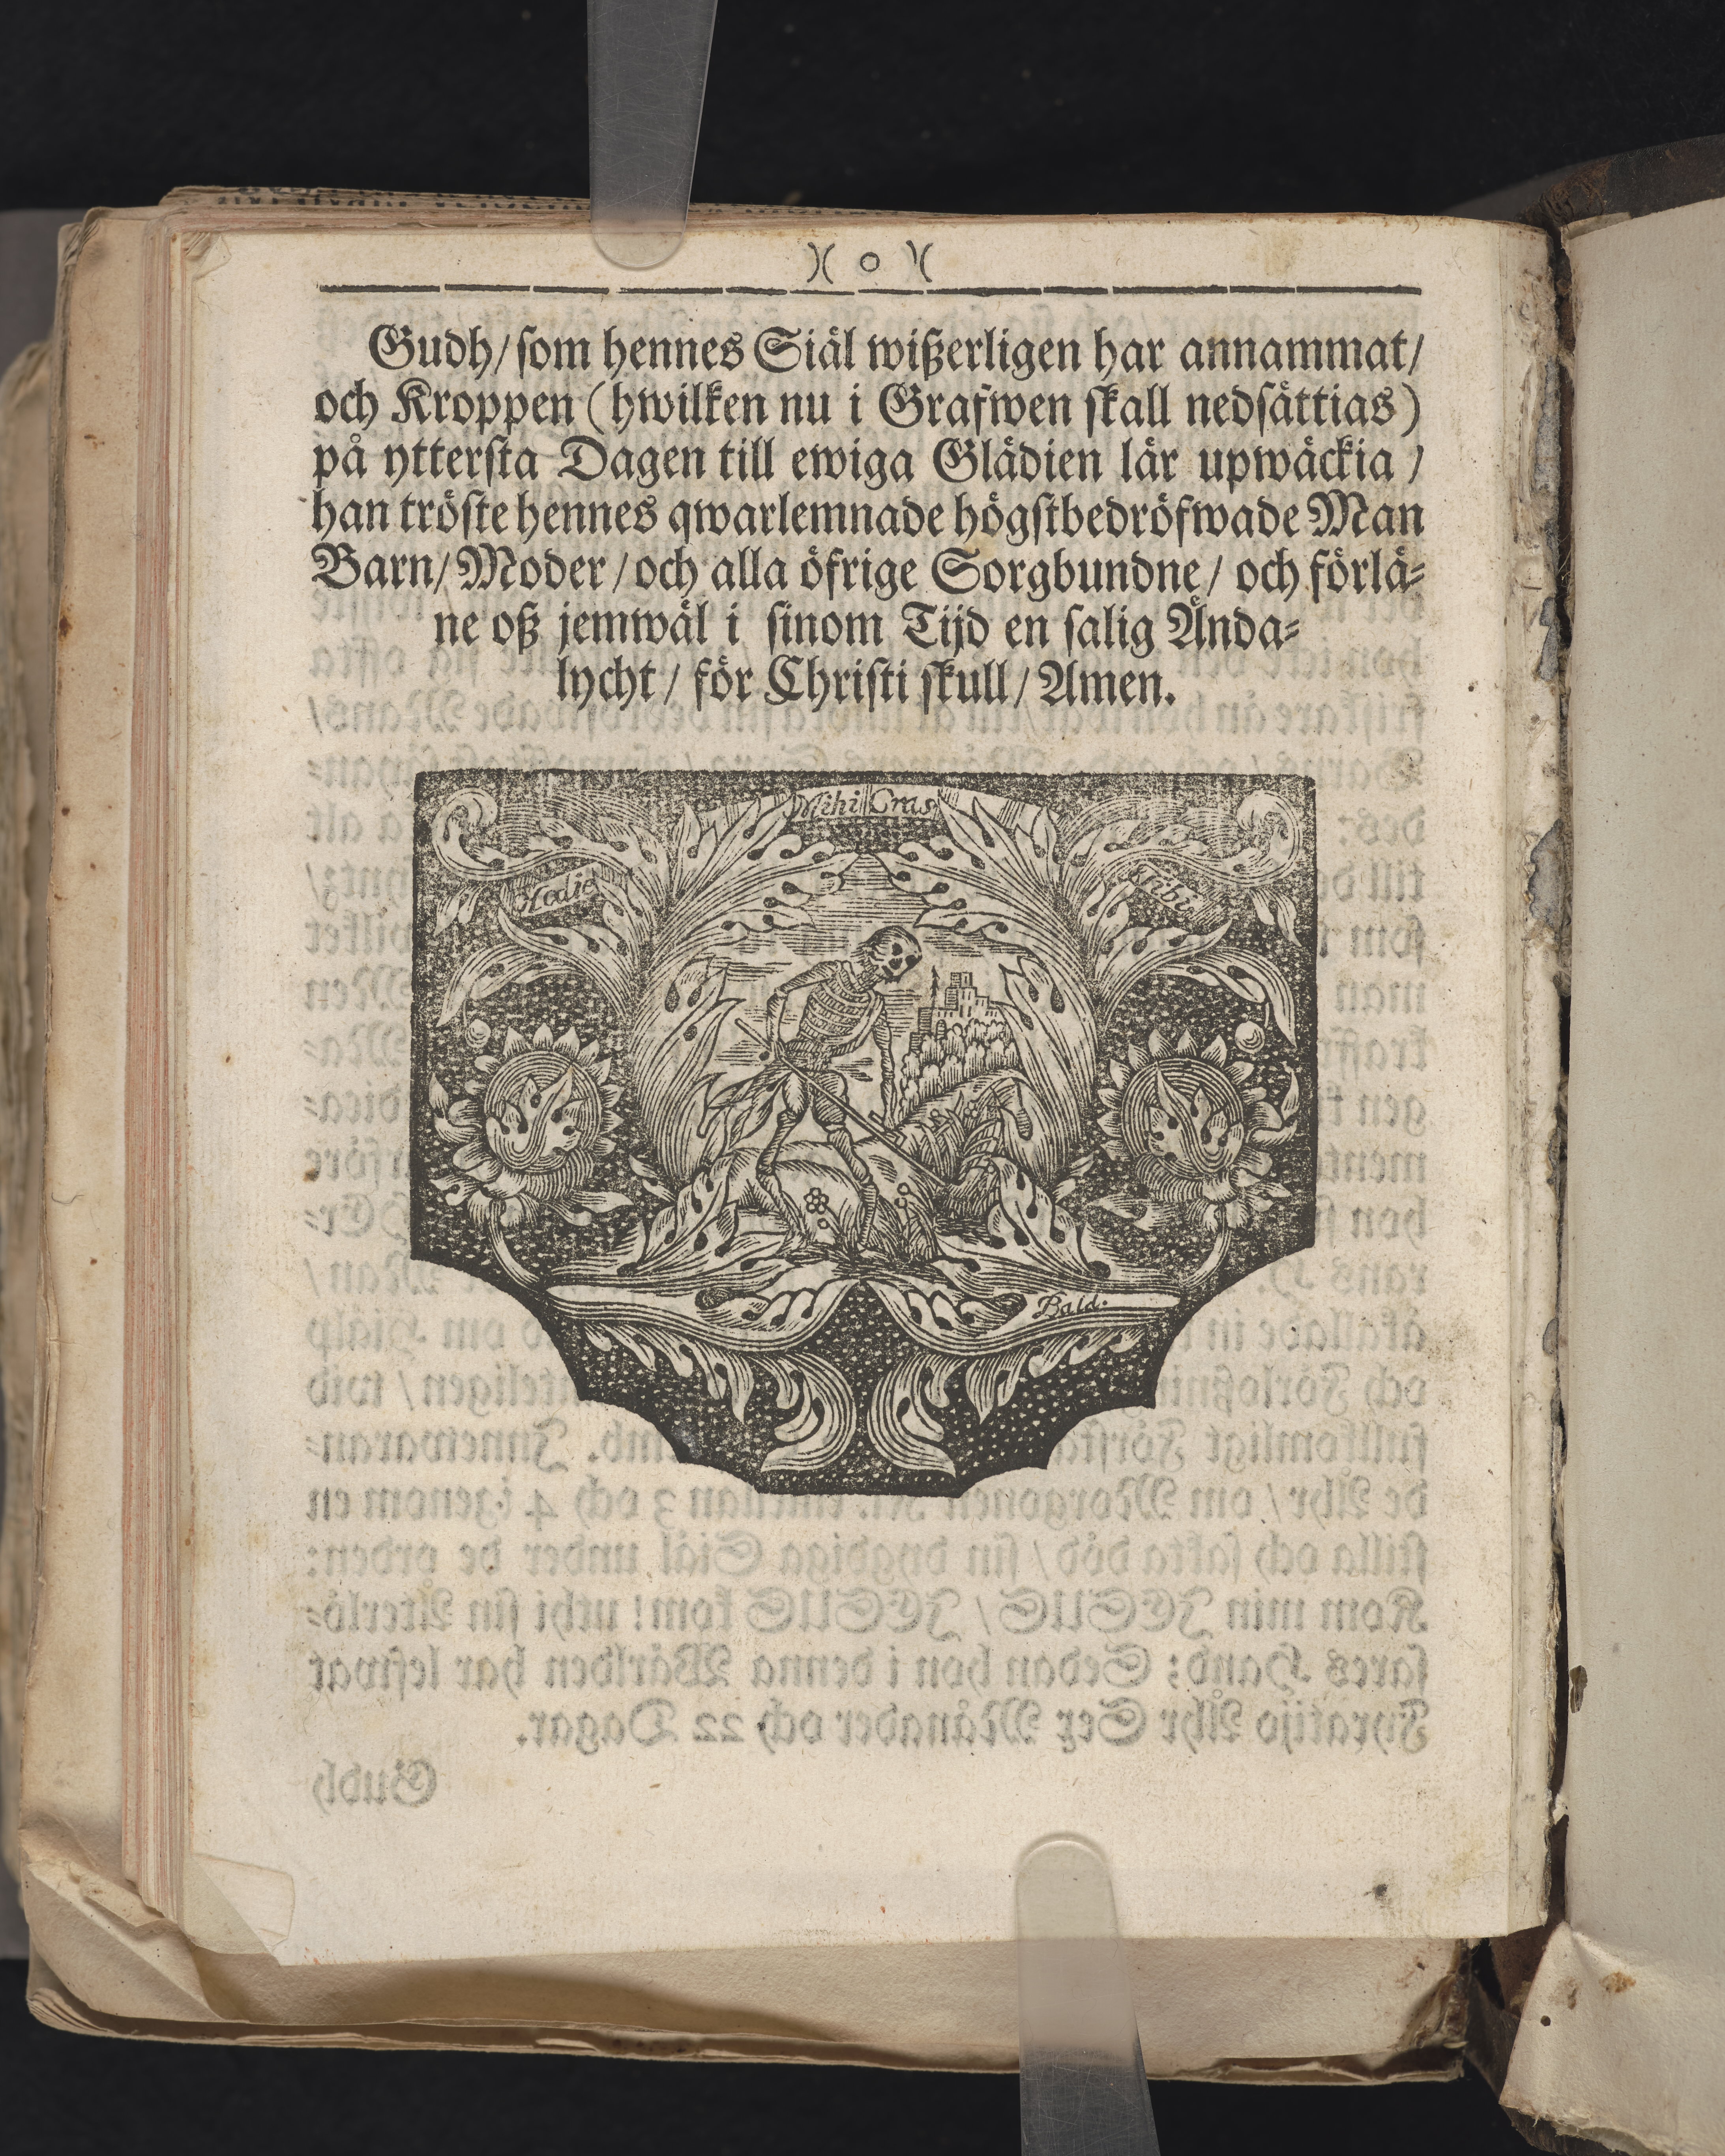 )( o )(
Gudh/ som hennes Siäl wißerligen har annammat/
och Kroppen (hwilken nu i Grafwen skall nedsättias)
på yttersta Dagen till ewiga Glädien lär upwäckia /
han tröste hennes qwarlemnade högstbedröfwade Man
Barn/ Moder / och alla öfrige Sorgbundne / och förlä-
ne oß jemwäl i sinom Tijd en salig Ända-
lycht / för Christi skull / Amen.
Mihi Cras
Hodie
Tibi
Bald.